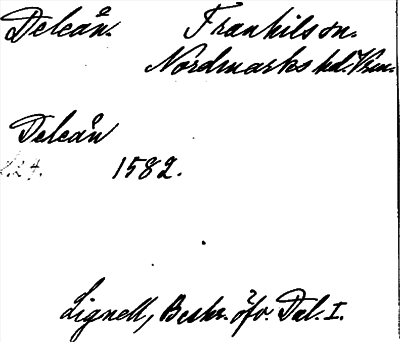 Deleån. Frankilson.
Nordmarks hd. Vrm.
Deleån
24. 1582.
Lignell, Beskr. öfv. Dal. I.